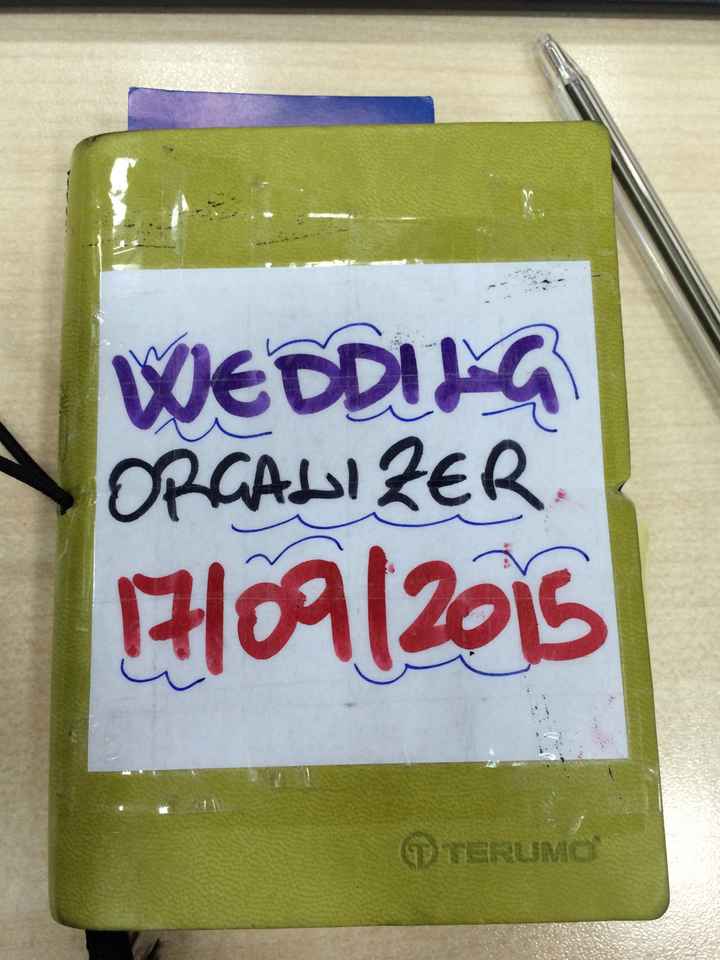 WEDDING
ORGANIZER
17/09/2015
TERUMO